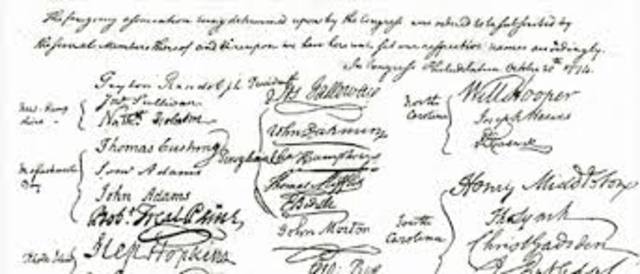 The foregoing association being determined upon by the Congress was ordered to be subscribed by
the several Members thereof and thereupon we have hereunto set our respective names accordingly.
In Congress Philadelphia October 20th 1774.
Peyton Randolph President
New Hamp
shire
Jno Sullivan
Nathl Folsom
Massachusetts
Bay
Thomas Cushing
Sam Adams
John Adams
Robt Treat Paine
Rhode Island
Step Hopkins
Jos Galloway
Cha Humphreys
Thomas Mifflin
E Biddle
John Morton
Geo: Ross
North
Carolina
Will Hooper
Joseph Hewes
R Caswell
South
Carolina
Henry Middleton
Tho Lynch
Christ Gadsden